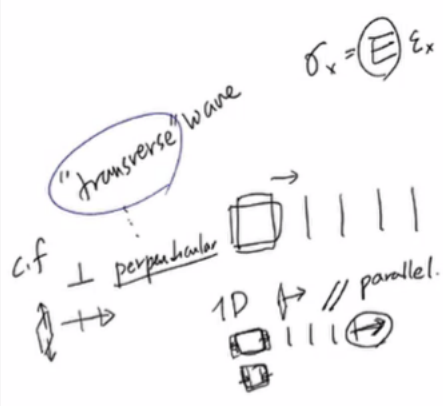 σx = E εx
"transverse" wave
c.f ⊥ perpenticular
1D // parallel.